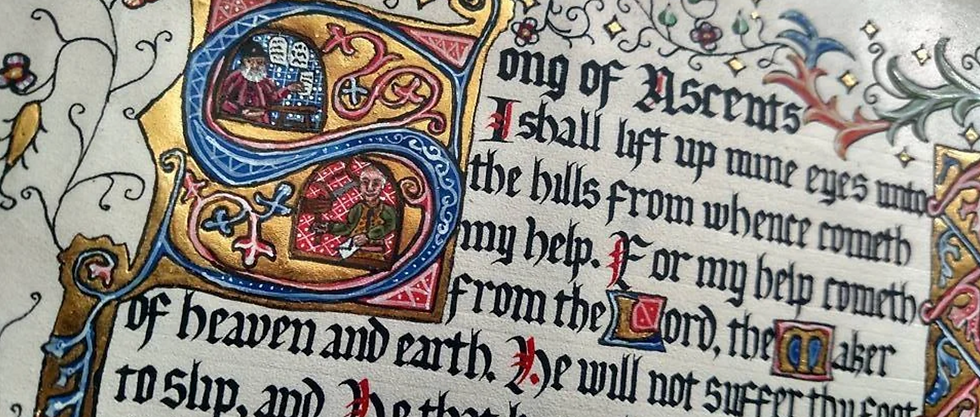 Song of Ascents
I shall lift up mine eyes unto
the hills from whence cometh
my help. For my help cometh
from the Lord, the Maker
of heaven and earth. He will not suffer thy foot
to slip, and He that